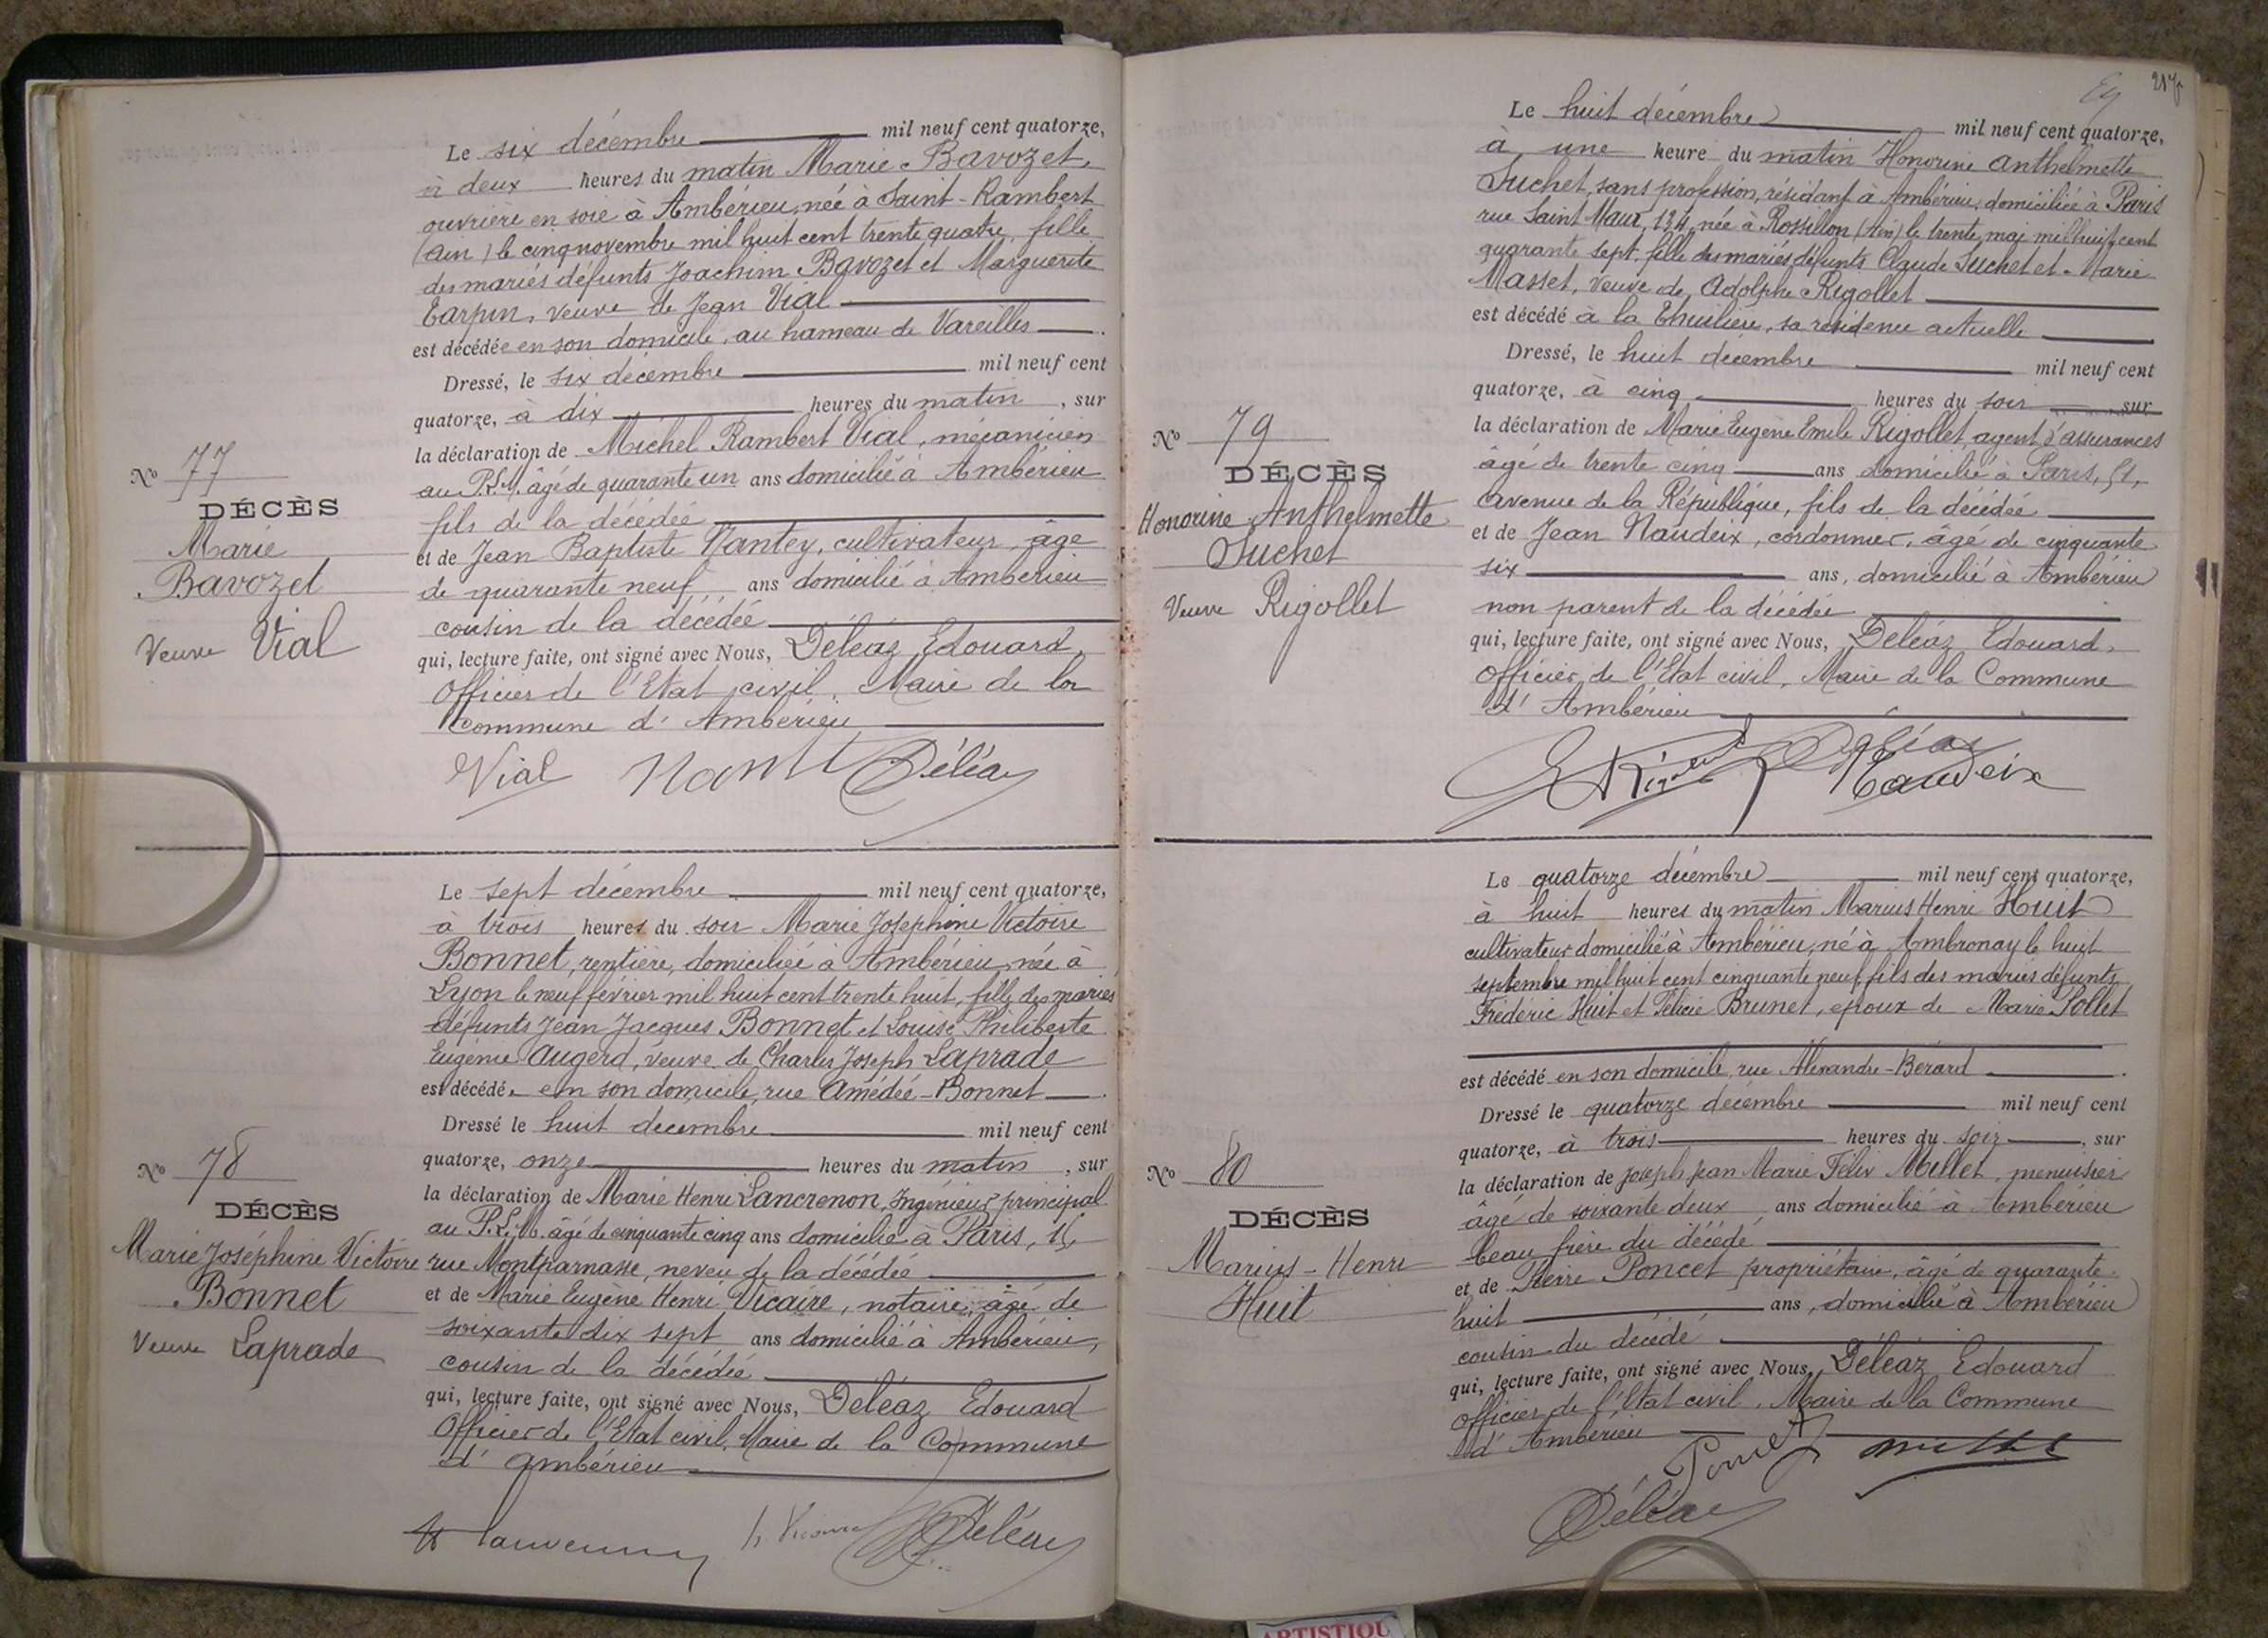 Le six décembre mil neuf cent quatorze,
à deux heures du matin Marie Bavozet,
ouvrière en soie à Ambérieu, née à Saint-Rambert
(Ain) le cinq novembre mil huit cent trente quatre, fille
des mariés défunts Joachim Bavozet et Marguerite
Tarpin, veuve de Jean Vial
est décédée en son domicile, au hameau de Vareilles
Dressé, le six décembre mil neuf cent
quatorze, à dix heures du matin, sur
la déclaration de Michel Rambert Vial, mécanicien
au P.L.M. âgé de quarante un ans domicilié à Ambérieu
fils de la décédée
et de Jean Baptiste Nantey, cultivateur, âgé
de quarante neuf ans domicilié à Ambérieu
cousin de la décédée
qui, lecture faite, ont signé avec Nous, Déléaz Edouard,
Officier de l'Etat civil, Maire de la
commune d'Ambérieu
Vial Déléaz
No 77
DÉCÈS
Marie
Bavozet
Veuve Vial
Le sept décembre mil neuf cent quatorze,
à trois heures du soir Marie Joséphine Victoire
Bonnet, rentière, domiciliée à Ambérieu, née à
Lyon le neuf février mil huit cent trente huit, fille des mariés
défunts Jean Jacques Bonnet et Louise Philiberte
Eugénie Augerd, veuve de Charles Joseph Laprade
est décédée en son domicile, rue Amédée-Bonnet
Dressé le huit décembre mil neuf cent
quatorze, onze heures du matin, sur
la déclaration de Marie Henri Lancrenon, Ingénieur principal
au P.L.M. âgé de cinquante cinq ans domicilié à Paris,
rue Montparnasse, neveu de la décédée
et de Marie Eugène Henri Vicaire, notaire, âgé de
soixante dix sept ans domicilié à Ambérieu,
cousin de la décédée
qui, lecture faite, ont signé avec Nous, Déléaz Edouard
Officier de l'Etat civil, Maire de la Commune
d'Ambérieu
h Vicaire Déléaz
No 78
DÉCÈS
Marie Joséphine Victoire
Bonnet
Veuve Laprade
Le huit décembre mil neuf cent quatorze,
à une heure du matin Honorine Anthelmette
Suchet, sans profession, résidant à Ambérieu, domiciliée à Paris
rue Saint Maur, 124, née à Rossillon (Ain) le trente mai mil huit cent
quarante sept, fille des mariés défunts Claude Suchet et Marie
Masset, veuve de Adolphe Rigollet
est décédé à la Thuilière, sa résidence actuelle
Dressé, le huit décembre mil neuf cent
quatorze, à cinq heures du soir sur
la déclaration de Marie Eugène Emile Rigollet, agent d'assurances
âgé de trente cinq ans domicilié à Paris, 51,
Avenue de la République, fils de la décédée
et de Jean Naudeix, cordonnier, âgé de cinquante
six ans, domicilié à Ambérieu
non parent de la décédée
qui, lecture faite, ont signé avec Nous, Déléaz Edouard,
Officier de l'Etat civil, Maire de la Commune
d'Ambérieu
Déléaz
Naudeix
No 79
DÉCÈS
Honorine Anthelmette
Suchet
Veuve Rigollet
Le quatorze décembre mil neuf cent quatorze,
à huit heures du matin Marius Henri Huit
cultivateur domicilié à Ambérieu, né à Ambronay le huit
septembre mil huit cent cinquante neuf, fils des mariés défunts
Frédéric Huit et Félicie Brunet, époux de Marie Pollet
est décédé en son domicile, rue Alexandre-Bérard
Dressé le quatorze décembre mil neuf cent
quatorze, à trois heures du soir, sur
la déclaration de Joseph Jean Marie Félix Millet, menuisier
âgé de soixante deux ans domicilié à Ambérieu
beau frère du décédé
et de Pierre Poncet propriétaire, âgé de quarante
huit ans, domicilié à Ambérieu
cousin du décédé
qui, lecture faite, ont signé avec Nous, Déléaz Edouard
Officier de l'Etat civil, Maire de la Commune
d'Ambérieu
Poncet Millet
Déléaz
No 80
DÉCÈS
Marius-Henri
Huit
ARTISTIQU